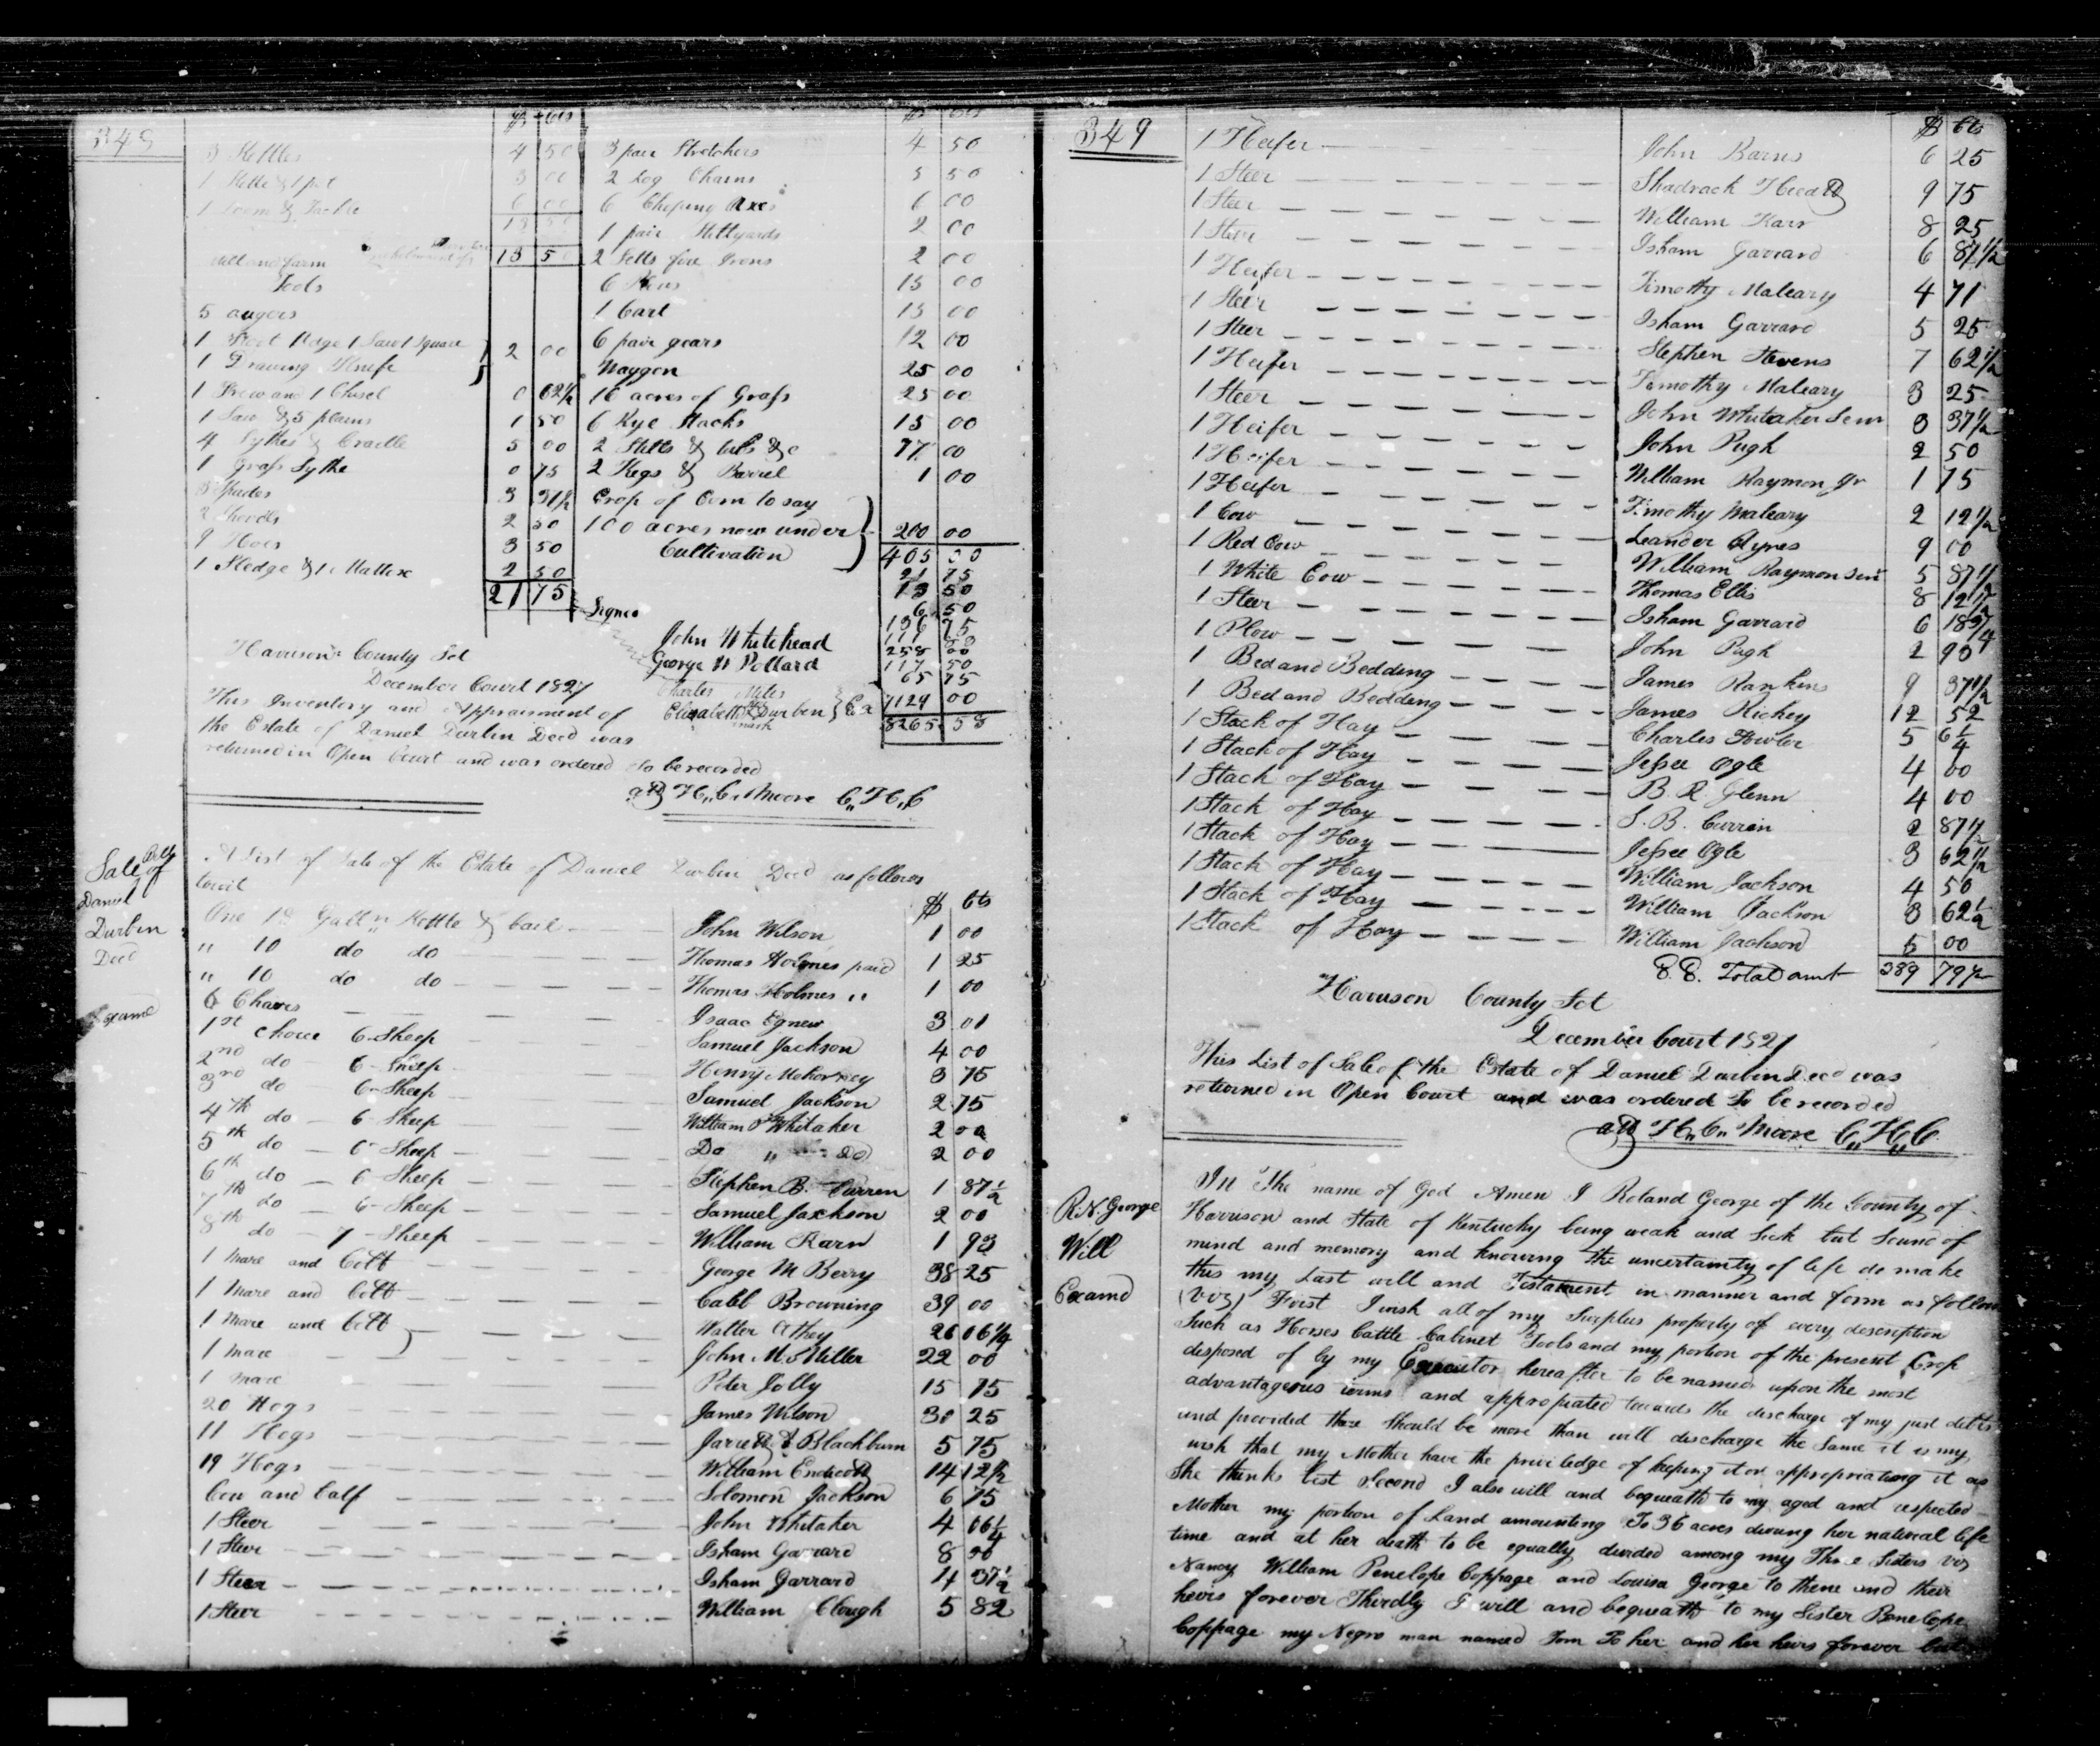 348
$ cts
3 Kettles 4 50
1 Kettle & 1 pot 3 00
1 Loom & Tackle 6 00
13 50
13 50
and farm
Tools
5 augers
1 Foot Adge 1 Saw 1 Square
1 Drawing Knife } 2 00
1 Frow and 1 Chisel 0 62 1/2
1 Saw & 5 plains 1 50
4 Sythes & Cradle 5 00
1 Grass Sythe 0 75
3 Spades 3 31 1/2
2 2 50
9 Hoes 3 50
1 Sledge & 1 Mattox 2 50
21 75
$ cts
3 pair Stretchers 4 50
2 Log Chains 5 50
6 Choping Axes 6 00
1 pair Stillyards 2 00
2 Setts fire Irons 2 00
6 Plows 15 00
1 Cart 15 00
6 pair gears 12 00
Waggon 25 00
16 acres of Grass 25 00
6 Rye Stacks 15 00
2 Stills & tubs &c 77 00
2 Kegs & Barrel 1 00
Crop of Corn to say
100 acres now under } 200 00
Cultivation 405 00
21 75
13 50
6 50
136 75
111
258 00
117 50
65 75
7129 00
8265 58
Signed
John Whitehead
George W Pollard
Charles Miles
Elizabeth Durbin } Ex
her mark
Harrison County Sct
December Court 1827
This Inventory and Appraisment of
the Estate of Daniel Durbin Decd was
returned in Open Court and was ordered to be recorded
att H,, C,, Moore C,, H,, C
Sale Bill of
Daniel
Durbin
Decd
Examd
A List of Sale of the Estate of Daniel Durbin Decd as follows
towit
$ cts
One 18 Gall,,n Kettle & bail John Wilson 1 00
" 10 do do Thomas Holmes paid 1 25
" 10 do do Thomas Holmes " 1 00
6 Chares Isaac Egnew 3 01
1st choice 6 Sheep Samuel Jackson 4 00
2nd do 6 Sheep Henry 3 75
3rd do 6 Sheep Samuel Jackson 2 75
4th do 6 Sheep William P Whitaker 2 00
5th do 6 Sheep Do " do 2 00
6th do 6 Sheep Stephen B. Curren 1 87 1/2
7th do 6 Sheep Samuel Jackson 2 00
8th do 7 Sheep William Karn 1 93
1 mare and Colt George M Berry 38 25
1 Mare and Colt Cabl Browning 39 00
1 Mare and Colt Walter Athey 26 06 1/4
1 mare John McMiller 22 00
1 mare Peter Jolly 15 75
20 Hogs James Wilson 30 25
11 Hogs Blackburn 5 75
19 Hogs William Endicott 14 12 1/2
Cow and Calf Solomon Jackson 6 75
1 Steer John Whitaker 4 06 1/4
1 Steer Isham Garrard 8 50
1 Steer Isham Garrard 4 37 1/2
1 Steer William Clough 5 82
349
$ cts
1 Heifer John Barns 6 25
1 Steer Shadrack 9 75
1 Steer William Karr 8 25
1 Steer Isham Garrard 6 87 1/2
1 Heifer Timothy Maleary 4 71
1 Steer Isham Garrard 5 25
1 Steer Stephen Stevens 7 62 1/2
1 Heifer Timothy Maleary 3 25
1 Steer John Whitaker Senr 3 37 1/2
1 Heifer John Pugh 2 50
1 Heifer William Raymon Jr 1 75
1 Heifer Timothy Maleary 2 12 1/2
1 Cow Leander Ayres 9 00
1 Red Cow William Raymon Senr 5 87 1/2
1 White Cow Thomas Ellis 8 12 1/2
1 Steer Isham Garrard 6 18 3/4
1 Plow John Pugh 2 93
1 Bed and Bedding James Rankins 9 37 1/2
1 Bed and Bedding James Hickey 12 52
1 Stack of Hay Charles Fowler 5 6 1/4
1 Stack of Hay Jessee Ogle 4 00
1 Stack of Hay B. R. Glenn 4 00
1 Stack of Hay S. B. Curren 2 87 1/2
1 Stack of Hay Jessee Ogle 3 62 1/2
1 Stack of Hay William Jackson 4 50
1 Stack of Hay William Jackson 3 62 1/2
1 Stack of Hay William Jackson 5 00
E. E. Total amt 389 79 1/2
Harrison County Sct
December Court 1827
This List of Sale of the Estate of Daniel Durbin Decd was
returned in Open Court and was ordered to be recorded
att H,, C,, Moore C,, H,, C
R. N. George
Will
Examd
In The name of God Amen I Roland George of the County of
Harrison and State of Kentucky being weak and Sick but Sound of
mind and memory and knowing the uncertainty of life do make
this my Last will and Testament in manner and form as follows
(viz) First I wish all of my Surplus property of every description
Such as Horses Cattle Cabinet Tools and my portion of the present Crop
disposed of by my Executor hereafter to be named upon the most
advantageous terms and appropriated towards the discharge of my just debts
and provided there should be more than will discharge the Same it is my
wish that my Mother have the priviledge of keeping it or appropriating it as
She thinks best Second I also will and bequeath to my aged and respected
Mother my portion of Land amounting To 36 acres during her natural life
time and at her death to be equally divided among my Three Sisters viz
Nancy William Penelope Coppage and Louisa George to theme and their
heirs forever Thirdly I will and bequeath to my Sister Penelope
Coppage my Negro man named Tom To her and her heirs forever but